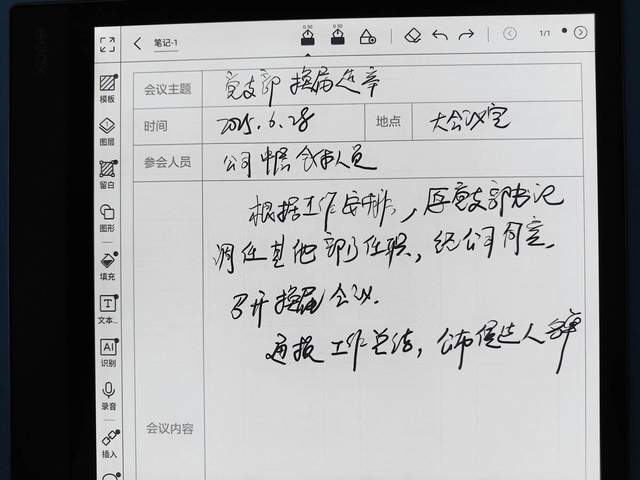 笔记-1
0.50
0.50
1/1
模板
图层
留白
图形
填充
文本...
AI
识别
录音
插入
会议主题 党支部换届选举
时间 2025.6.28 地点 大会议室
参会人员 公司中层 全体人员
会议内容
根据工作安排，原党支部书记
调任其他部门任职，经公司研究，
召开换届会议.
通报工作总结，公布候选人名单